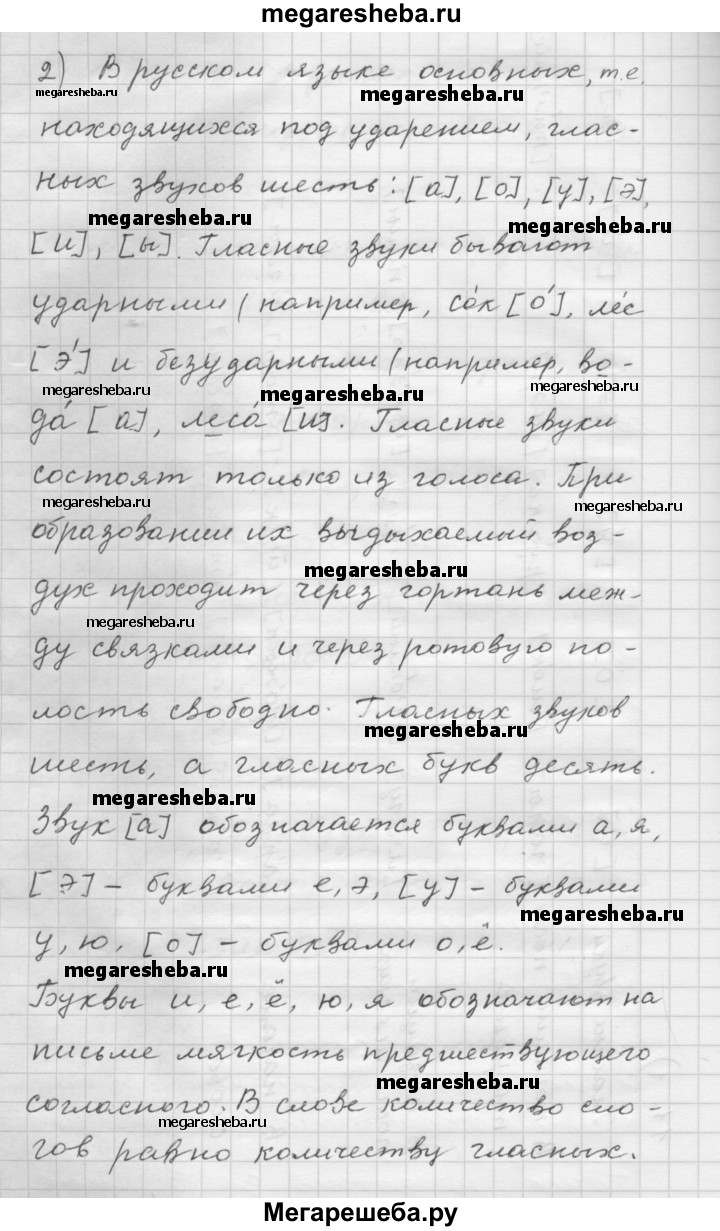 megaresheba.ru
2) В русском языке основных, т.е.
megaresheba.ru megaresheba.ru
находящихся под ударением, глас-
ных звуков шесть: [а], [о], [у], [э],
megaresheba.ru megaresheba.ru
[и], [ы]. Гласные звуки бывают
ударными (например, со́к [о́], ле́с
[э́] и безударными (например, во-
megaresheba.ru megaresheba.ru megaresheba.ru
да́ [а], леса́ [и]. Гласные звуки
состоят только из голоса. При
megaresheba.ru megaresheba.ru
образовании их выдыхаемый воз-
megaresheba.ru
дух проходит через гортань меж-
megaresheba.ru
ду связками и через ротовую по-
лость свободно. Гласных звуков
megaresheba.ru
шесть, а гласных букв десять.
megaresheba.ru
Звук [а] обозначается буквами а, я,
[э] - буквами е, э, [у] - буквами
megaresheba.ru
у, ю, [о] - буквами о, ё.
megaresheba.ru
Буквы и, е, ё, ю, я обозначают на
письме мягкость предшествующего
megaresheba.ru
согласного. В слове количество сло-
megaresheba.ru
гов равно количеству гласных.
Мегарешеба.ру